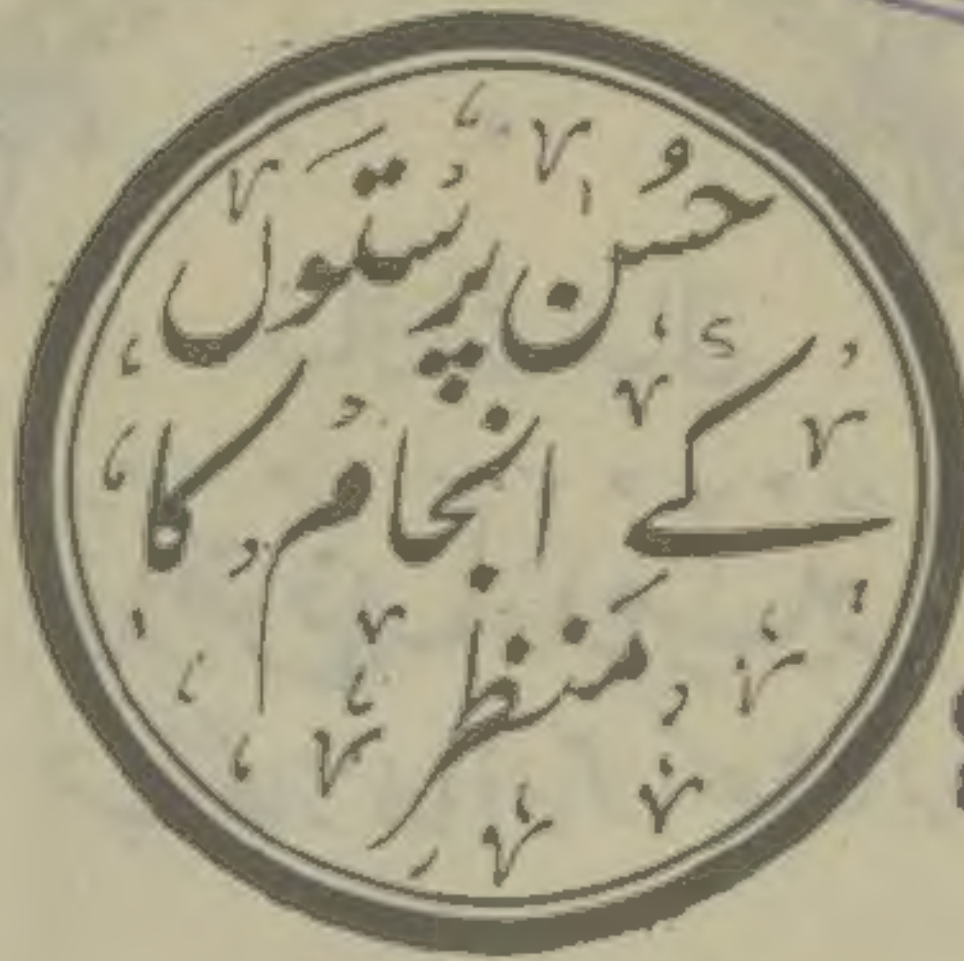 حُسن پرستوں
کے انجام کا
منظر